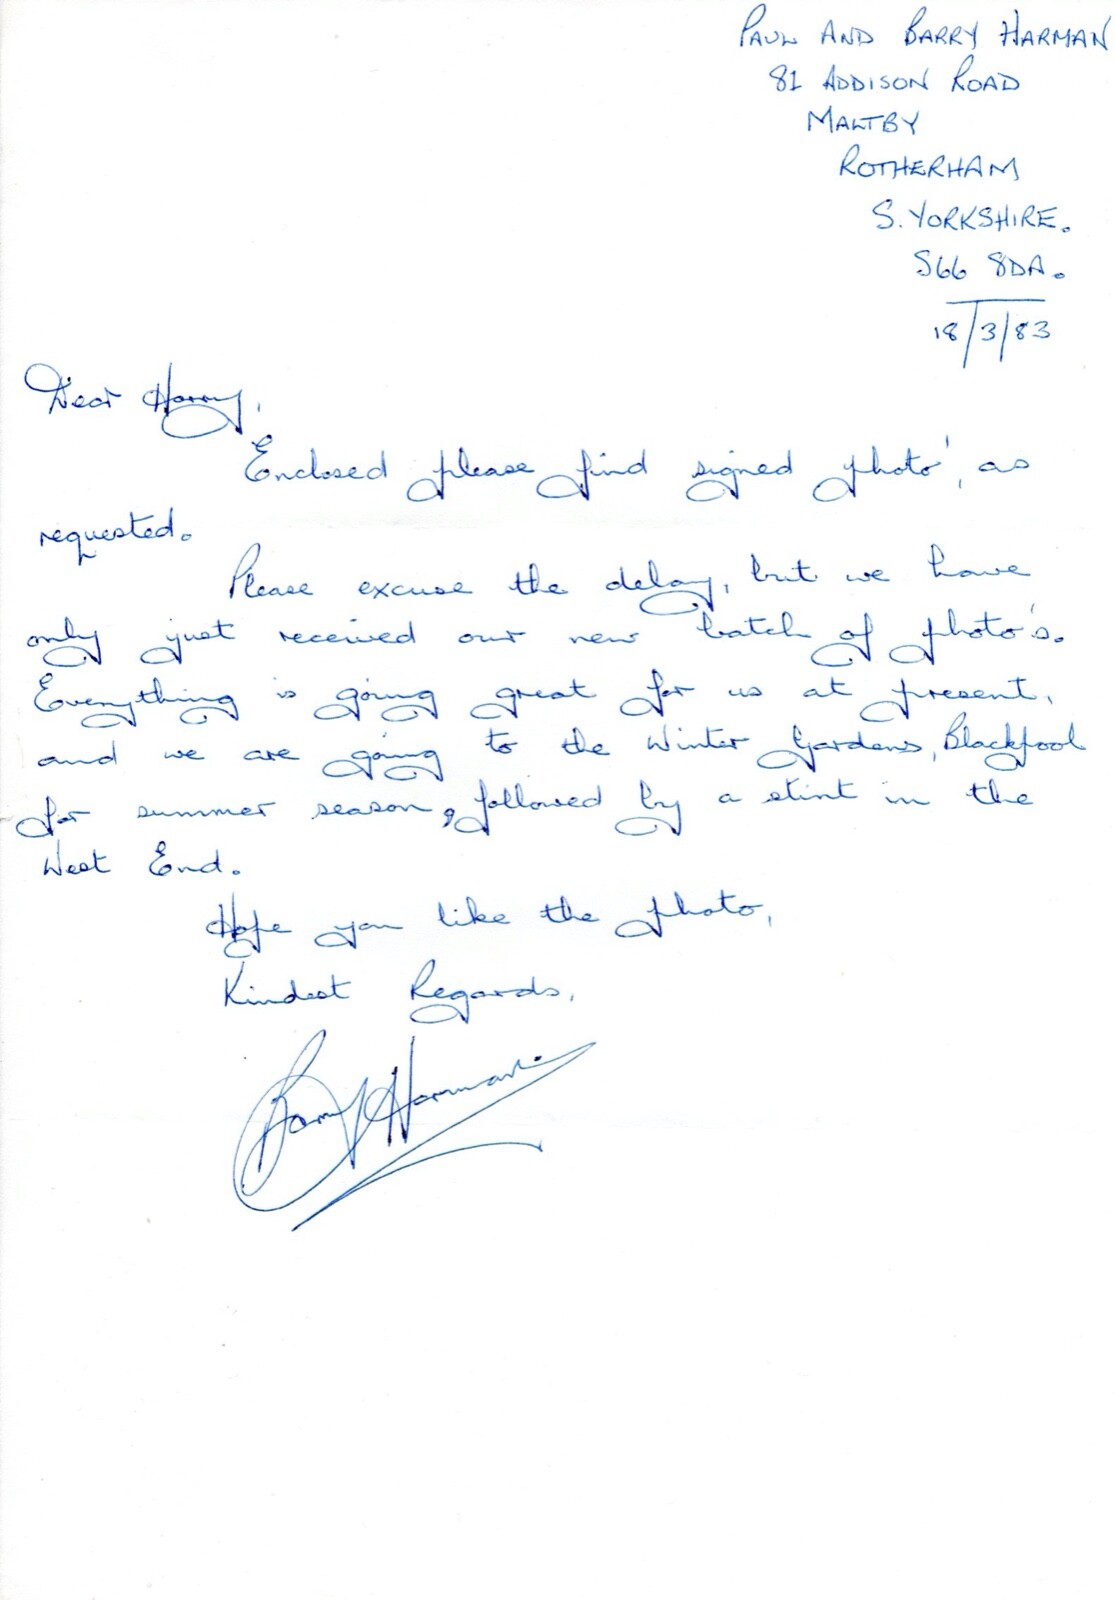 PAUL AND BARRY HARMAN
81 ADDISON ROAD
MALTBY
ROTHERHAM
S. YORKSHIRE.
S66 8DA.
18/3/83
Dear Harry,
Enclosed please find signed photo', as
requested.
Please excuse the delay, but we have
only just received our new batch of photo's.
Everything is going great for us at present,
and we are going to the Winter Gardens, Blackpool
for summer season, followed by a stint in the
West End.
Hope you like the photo,
Kindest Regards,
Barry Harman